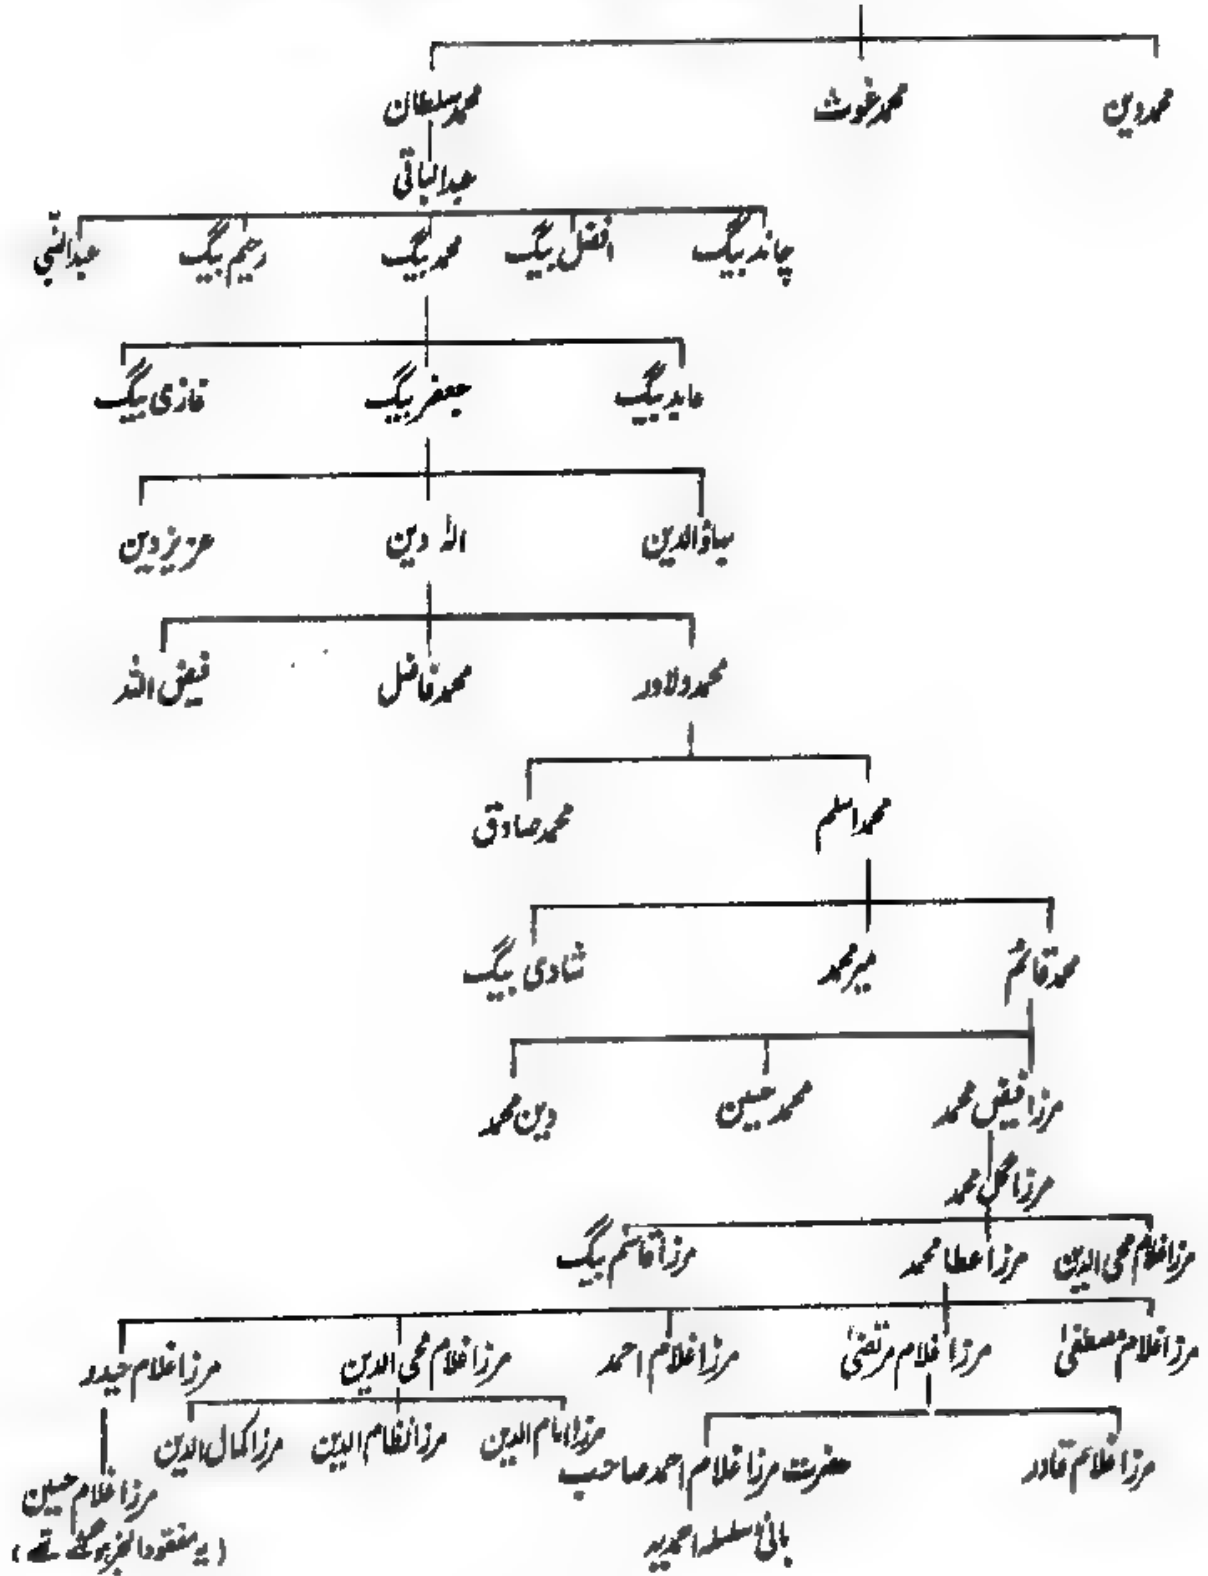 محمد دین محمد غوث محمد سلطان
عبدالباقی
چاند بیگ افضل بیگ محمد بیگ رحیم بیگ عبدالنبی
عابد بیگ جعفر بیگ غازی بیگ
بہاؤالدین الہ دین عزیز دین
محمد دلاور محمد فاضل فیض اللہ
محمد اسلم محمد صادق
محمد قائم میر محمد شادی بیگ
مرزا فیض محمد محمد حسین دین محمد
مرزا گل محمد
مرزا غلام محی الدین مرزا عطا محمد مرزا قاسم بیگ
مرزا غلام مصطفیٰ مرزا غلام مرتضیٰ مرزا غلام احمد مرزا غلام محی الدین مرزا غلام حیدر
مرزا غلام قادر حضرت مرزا غلام احمد صاحب مرزا امام الدین مرزا نظام الدین مرزا کمال الدین مرزا غلام حسین
بانیٔ سلسلہ احمدیہ (یہ مفقود الخبر ہو گئے تھے)